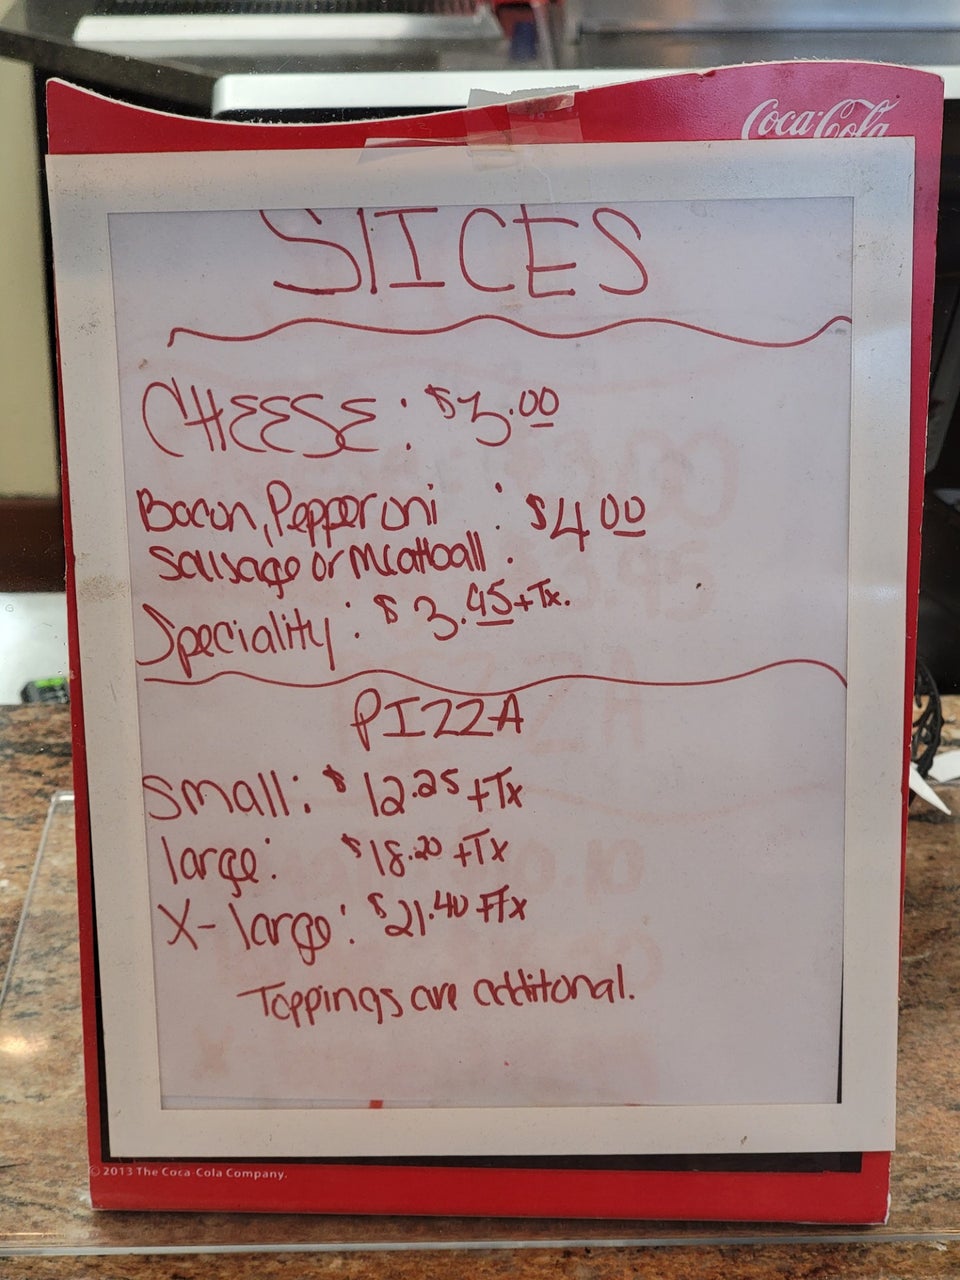 Coca-Cola
SLICES
CHEESE: $3.00
Bacon, Pepperoni : $4.00
Sausage or Meatball
Speciality: $3.95+Tx.
PIZZA
Small: $12.25 +Tx
large: $18.20 +Tx
X-large: $21.40 +Tx
Toppings are additonal.
© 2013 The Coca-Cola Company.